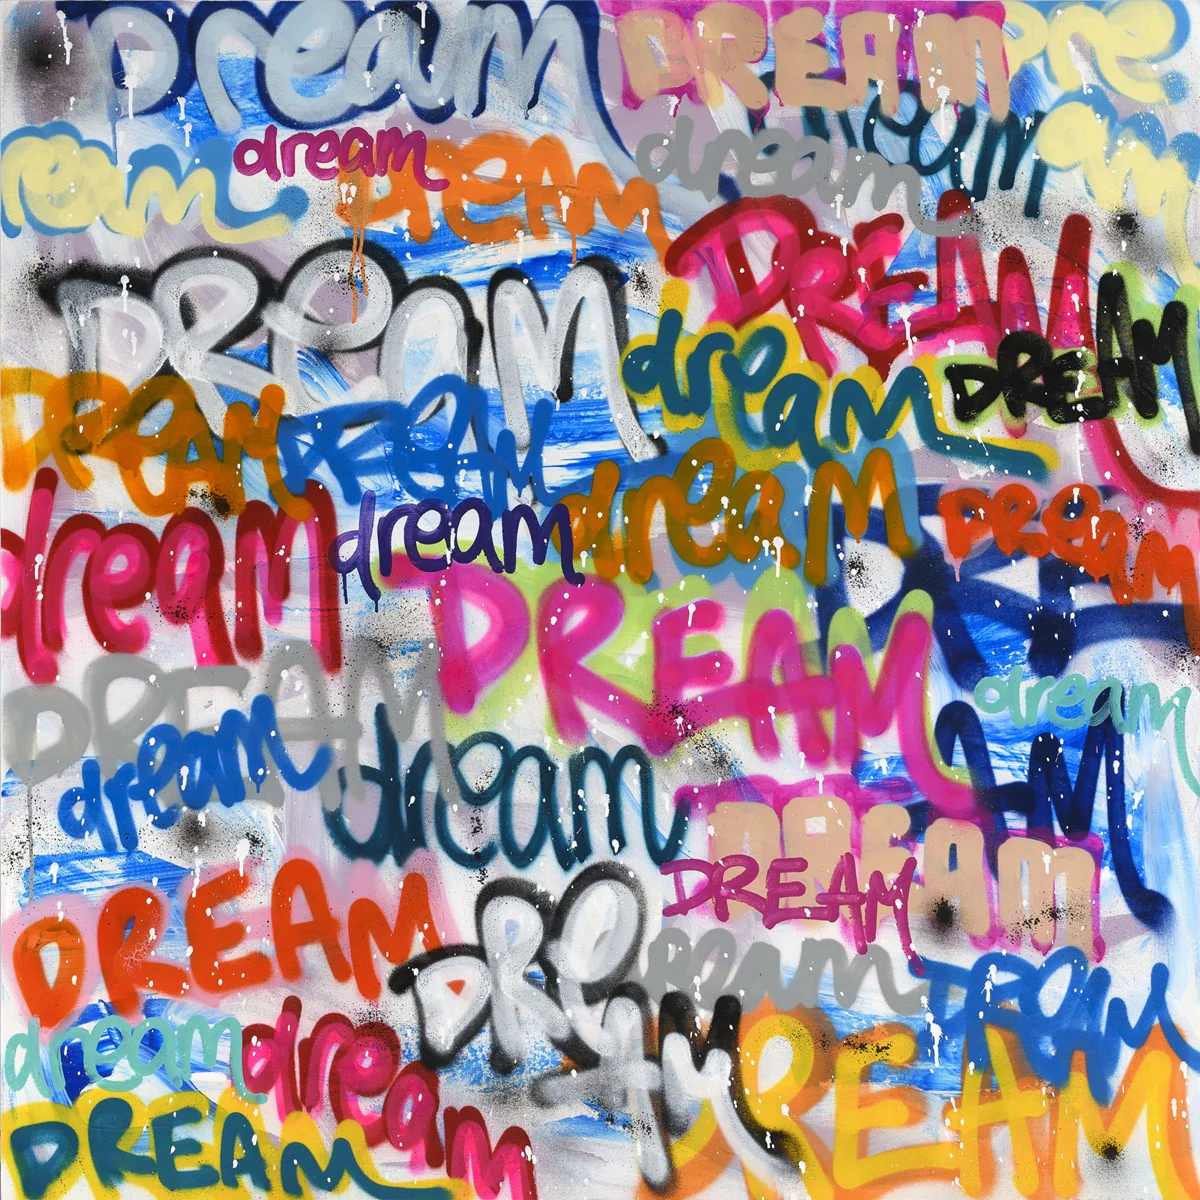 Dream DREAM Dre
ream dream DREAM dream eam am
DREAM DREAM
dream DREAM
DREAM DREAM dream
dream dream DREAM DREAM
DREAM AM
DREAM dream
dream dream
DREAM
DREAM DREAM
DREAM ream DREAM
dream dream DREAM
DREAM